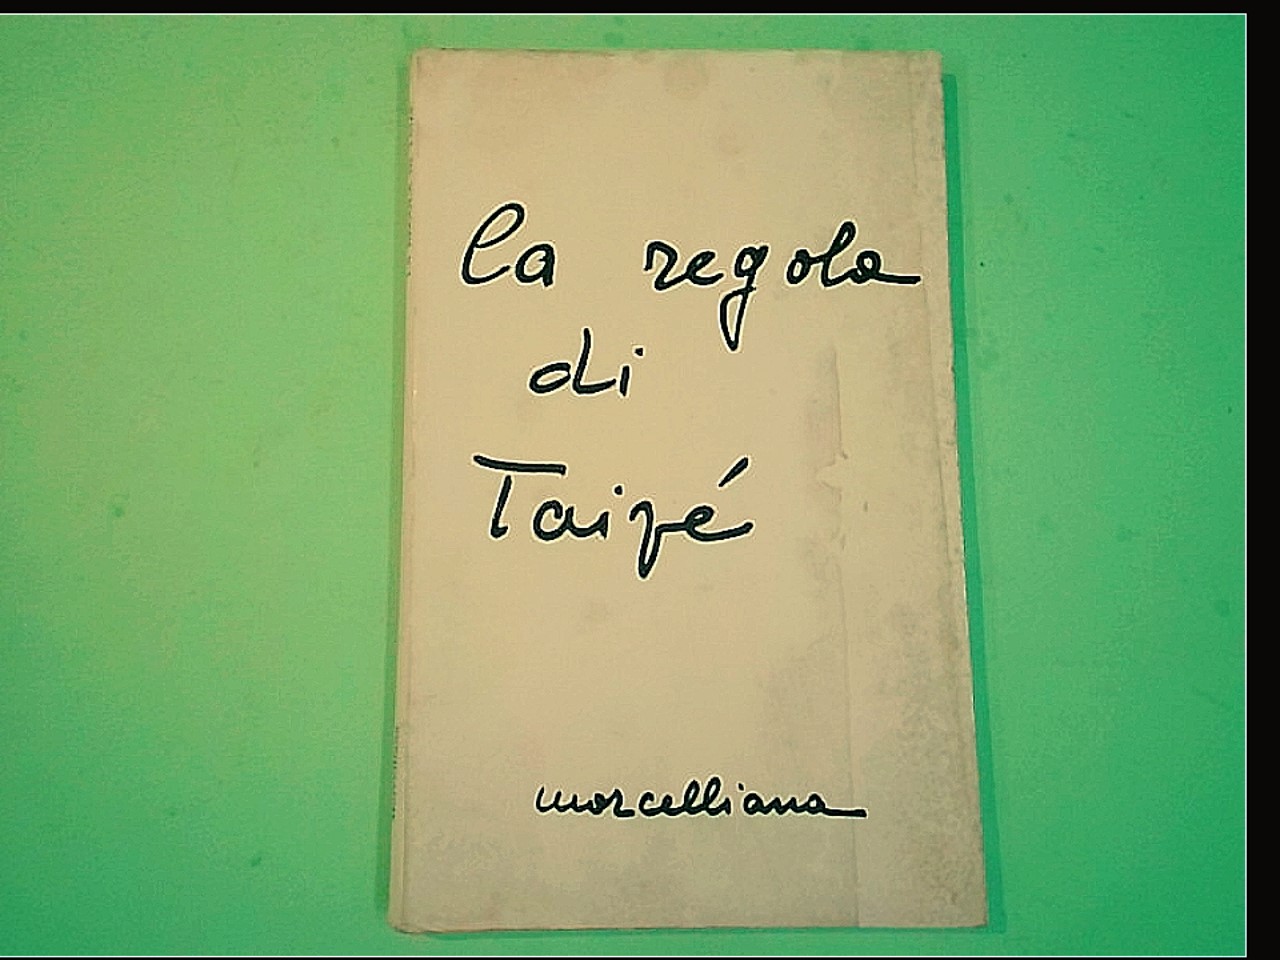 la regola
di
Taizé
morcelliana